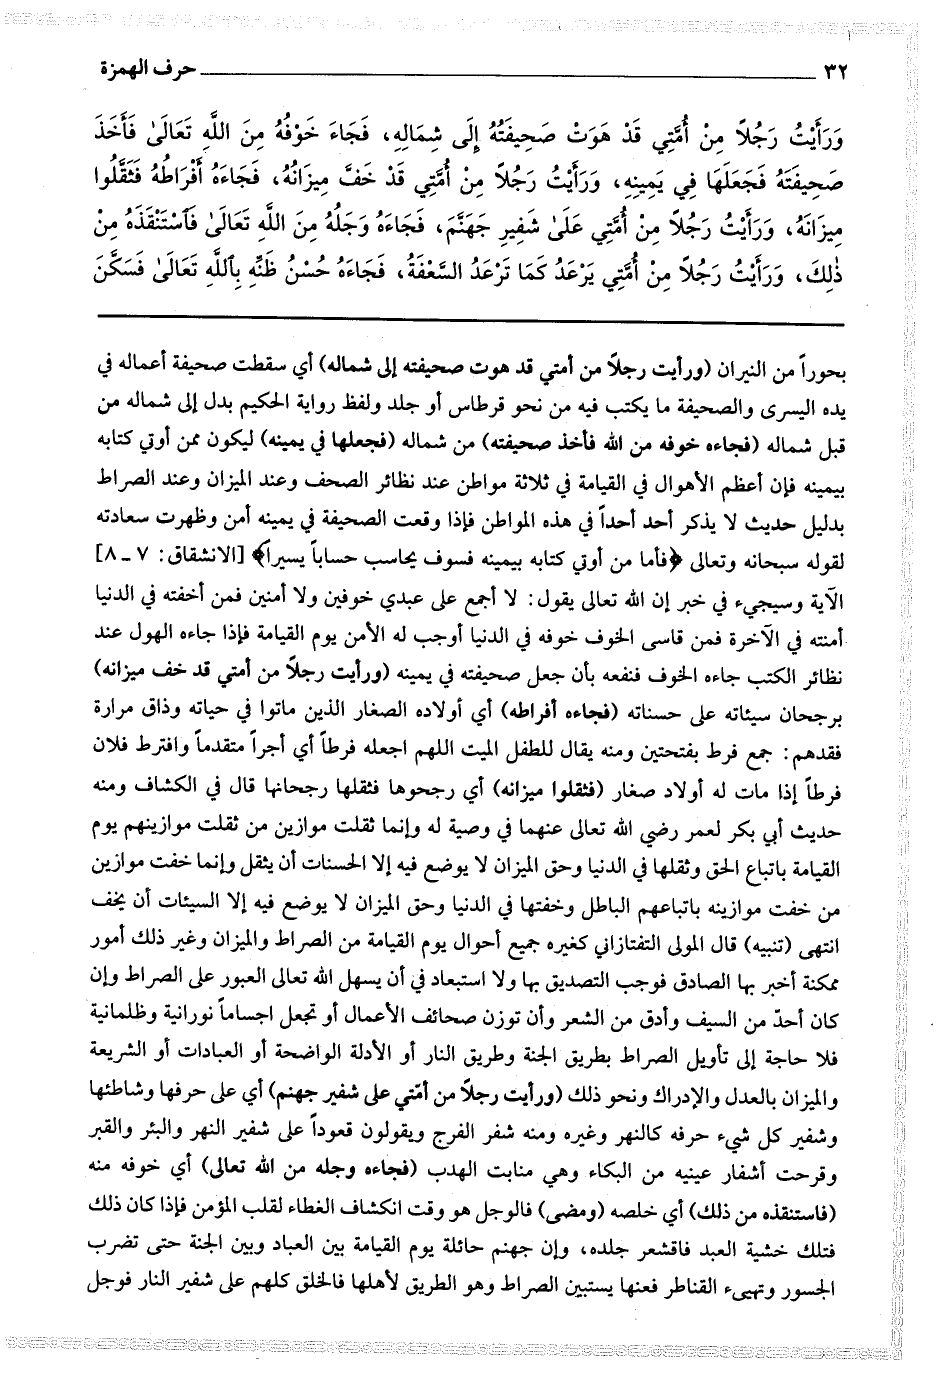 ٣٢ حرف الهمزة
وَرَأَيْتُ رَجُلاً مِنْ أُمَّتِي قَدْ هَوَتْ صَحِيفَتُهُ إِلَى شِمَالِهِ، فَجَاءَ خَوْفُهُ مِنَ اللَّهِ تَعَالَىٰ فَأَخَذَ
صَحِيفَتَهُ فَجَعَلَهَا فِي يَمِينِهِ، وَرَأَيْتُ رَجُلاً مِنْ أُمَّتِي قَدْ خَفَّ مِيزَانُهُ، فَجَاءَهُ أَفْرَاطُهُ فَثَقَّلُوا
مِيزَانَهُ، وَرَأَيْتُ رَجُلاً مِنْ أُمَّتِي عَلَىٰ شَفِيرِ جَهَنَّمَ، فَجَاءَهُ وَجَلُهُ مِنَ اللَّهِ تَعَالَىٰ فَٱسْتَنْقَذَهُ مِنْ
ذٰلِكَ، وَرَأَيْتُ رَجُلاً مِنْ أُمَّتِي يَرْعَدُ كَمَا تَرْعَدُ السَّعْفَةُ، فَجَاءَهُ حُسْنُ ظَنِّهِ بِٱللَّهِ تَعَالَىٰ فَسَكَّنَ
بحوراً من النيران (ورأيت رجلاً من أمتي قد هوت صحيفته إلى شماله) أي سقطت صحيفة أعماله في
يده اليسرى والصحيفة ما يكتب فيه من نحو قرطاس أو جلد ولفظ رواية الحكيم بدل إلى شماله من
قبل شماله (فجاءه خوفه من الله فأخذ صحيفته) من شماله (فجعلها في يمينه) ليكون ممن أوتي كتابه
بيمينه فإن أعظم الأهوال في القيامة في ثلاثة مواطن عند نظائر الصحف وعند الميزان وعند الصراط
بدليل حديث لا يذكر أحد أحداً في هذه المواطن فإذا وقعت الصحيفة في يمينه أمن وظهرت سعادته
لقوله سبحانه وتعالى ﴿فأما من أوتي كتابه بيمينه فسوف يحاسب حساباً يسيراً﴾ [الانشقاق: ٧ ـ ٨]
الآية وسيجيء في خبر إن الله تعالى يقول: لا أجمع على عبدي خوفين ولا أمنين فمن أخفته في الدنيا
أمنته في الآخرة فمن قاسى الخوف خوفه في الدنيا أوجب له الأمن يوم القيامة فإذا جاءه الهول عند
نظائر الكتب جاءه الخوف فنفعه بأن جعل صحيفته في يمينه (ورأيت رجلاً من أمتي قد خف ميزانه)
برجحان سيئاته على حسناته (فجاءه أفراطه) أي أولاده الصغار الذين ماتوا في حياته وذاق مرارة
فقدهم: جمع فرط بفتحتين ومنه يقال للطفل الميت اللهم اجعله فرطاً أي أجراً متقدماً وافترط فلان
فرطاً إذا مات له أولاد صغار (فثقلوا ميزانه) أي رجحوها فثقلها رجحانها قال في الكشاف ومنه
حديث أبي بكر لعمر رضي الله تعالى عنهما في وصية له وإنما ثقلت موازين من ثقلت موازينهم يوم
القيامة باتباع الحق وثقلها في الدنيا وحق الميزان لا يوضع فيه إلا الحسنات أن يثقل وإنما خفت موازين
من خفت موازينه باتباعهم الباطل وخفتها في الدنيا وحق الميزان لا يوضع فيه إلا السيئات أن يخف
انتهى (تنبيه) قال المولى التفتازاني كغيره جميع أحوال يوم القيامة من الصراط والميزان وغير ذلك أمور
ممكنة أخبر بها الصادق فوجب التصديق بها ولا استبعاد في أن يسهل الله تعالى العبور على الصراط وإن
كان أحدّ من السيف وأدق من الشعر وأن توزن صحائف الأعمال أو تجعل اجساماً نورانية وظلمانية
فلا حاجة إلى تأويل الصراط بطريق الجنة وطريق النار أو الأدلة الواضحة أو العبادات أو الشريعة
والميزان بالعدل والإدراك ونحو ذلك (ورأيت رجلاً من أمّتي على شفير جهنم) أي على حرفها وشاطئها
وشفير كل شيء حرفه كالنهر وغيره ومنه شفر الفرج ويقولون قعوداً على شفير النهر والبئر والقبر
وقرحت أشفار عينيه من البكاء وهي منابت الهدب (فجاءه وجله من الله تعالى) أي خوفه منه
(فاستنقذه من ذلك) أي خلصه (ومضى) فالوجل هو وقت انكشاف الغطاء لقلب المؤمن فإذا كان ذلك
فتلك خشية العبد فاقشعر جلده، وإن جهنم حائلة يوم القيامة بين العباد وبين الجنة حتى تضرب
الجسور وتهيىء القناطر فعنها يستبين الصراط وهو الطريق لأهلها فالخلق كلهم على شفير النار فوجل